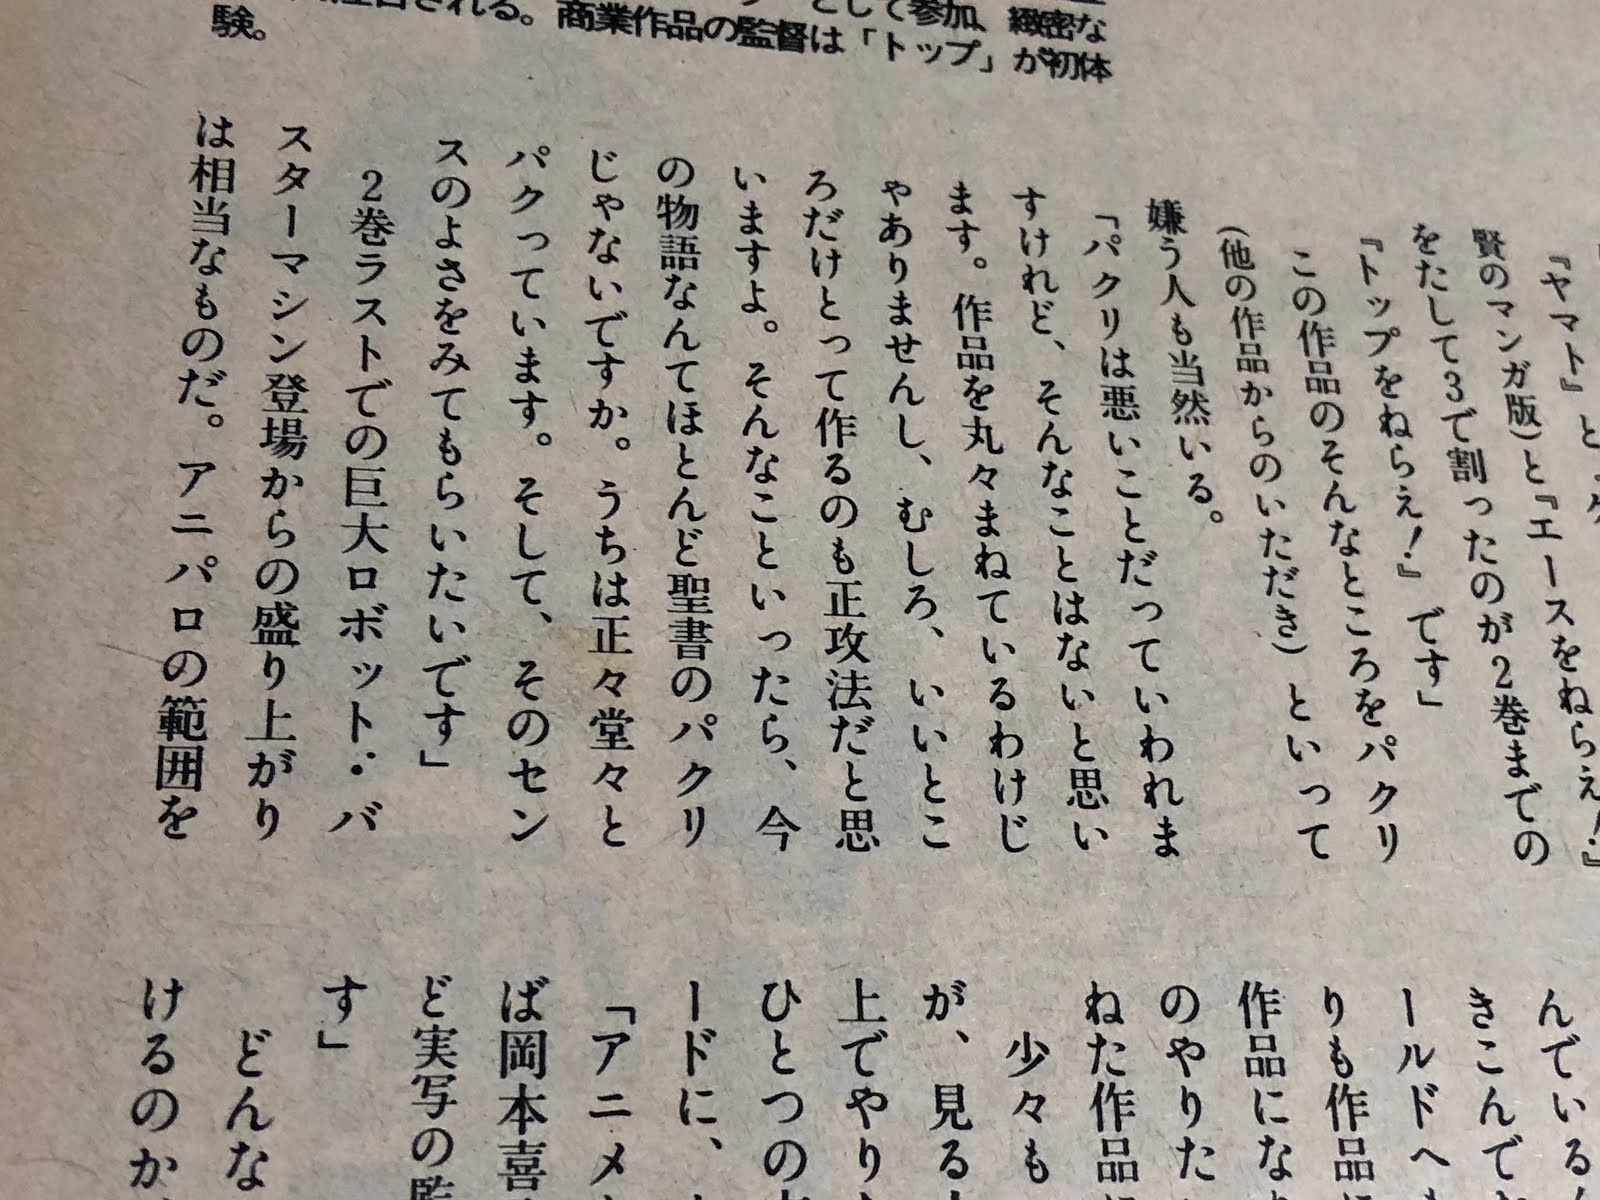 として参加、緻密な
される。商業作品の監督は「トップ」が初体
験。
『ヤマト』と
『エースをねらえ!』
賢のマンガ版)と『エースをねらえ!』
をたして3で割ったのが2巻までの
『トップをねらえ!』です」
この作品のそんなところをパクリ
(他の作品からのいただき)といって
嫌う人も当然いる。
「パクリは悪いことだっていわれま
すけれど、そんなことはないと思い
ます。作品を丸々まねているわけじ
ゃありませんし、むしろ、いいとこ
ろだけとって作るのも正攻法だと思
いますよ。そんなこといったら、今
の物語なんてほとんど聖書のパクリ
じゃないですか。うちは正々堂々と
パクっています。そして、そのセン
スのよさをみてもらいたいです」
2巻ラストでの巨大ロボット・バ
スターマシン登場からの盛り上がり
は相当なものだ。アニパロの範囲を
んでいる
きこんで
ールドへ
りも作品
作品にな
のやりた
ねた作品
少々も
が、見る
上でやり
ひとつの
ードに、
「アニメ
ば岡本喜
ど実写の監
す」
どんな
けるのか